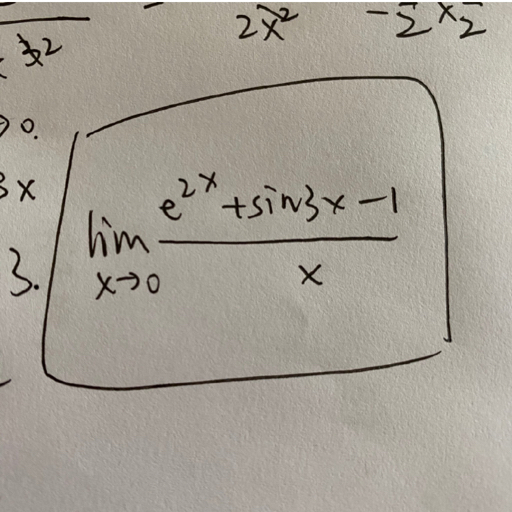 2x²
x→0
3x
3. lim x→0 (e^{2x} + sin3x − 1) / x